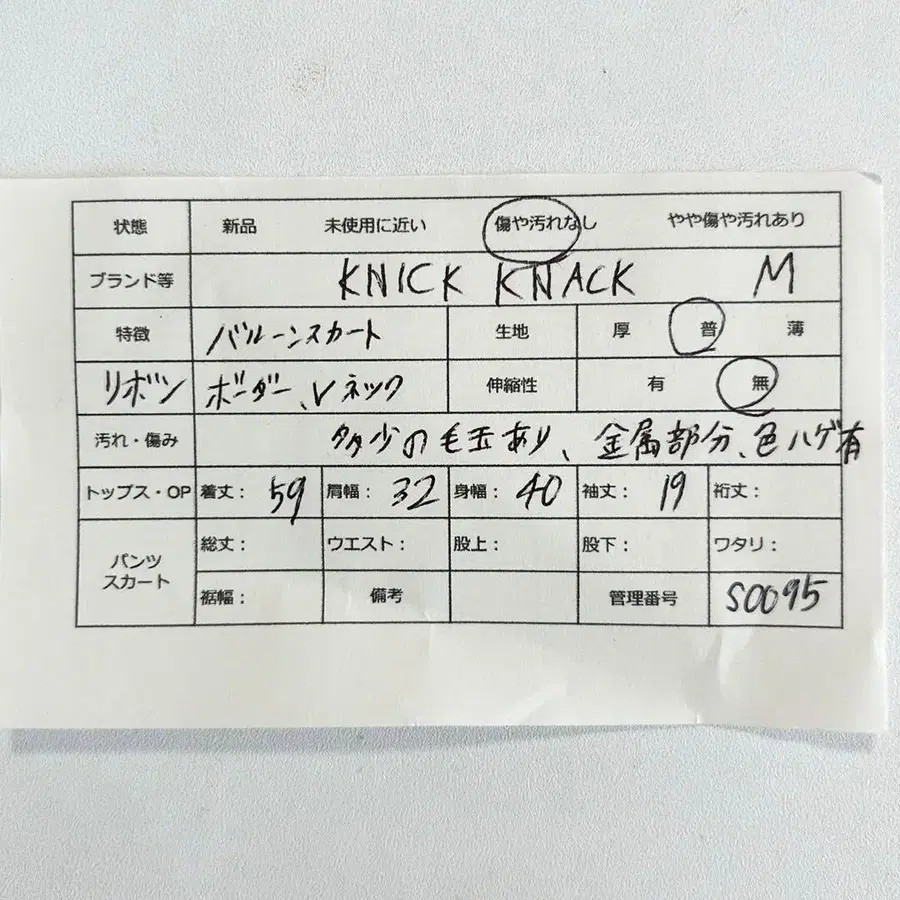 状態 新品 未使用に近い 傷や汚れなし やや傷や汚れあり
ブランド等 KNICK KNACK M
特徴 バルーンスカート 生地 厚 普 薄
リボン ボーダー、Vネック 伸縮性 有 無
汚れ・傷み 多少の毛玉あり、金属部分、色ハゲ有
トップス・OP 着丈: 59 肩幅: 32 身幅: 40 袖丈: 19 裄丈:
パンツ スカート 総丈: ウエスト: 股上: 股下: ワタリ:
裾幅: 備考 管理番号 S0095